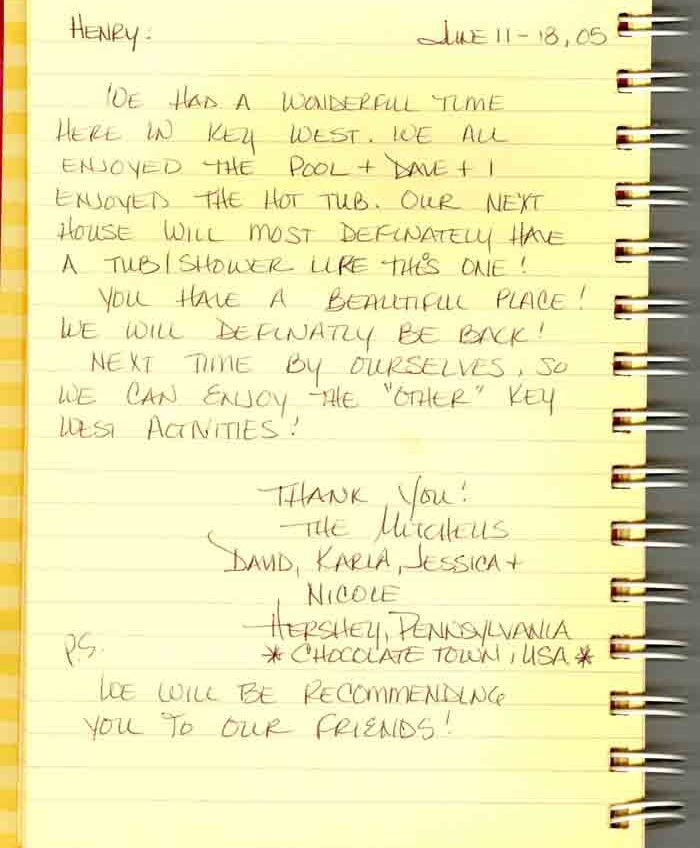 HENRY: JUNE 11-18, 05
WE HAD A WONDERFUL TIME
HERE IN KEY WEST. WE ALL
ENJOYED THE POOL + DAVE + I
ENJOYED THE HOT TUB. OUR NEXT
HOUSE WILL MOST DEFINATELY HAVE
A TUB/SHOWER LIKE THIS ONE!
YOU HAVE A BEAUTIFUL PLACE!
WE WILL DEFINATLY BE BACK!
NEXT TIME BY OURSELVES, SO
WE CAN ENJOY THE "OTHER" KEY
WEST ACTIVITIES!
THANK YOU!
THE MITCHELLS
DAVID, KARLA, JESSICA +
NICOLE
HERSHEY, PENNSYLVANIA
* CHOCOLATE TOWN, USA *
P.S.
WE WILL BE RECOMMENDING
YOU TO OUR FRIENDS!